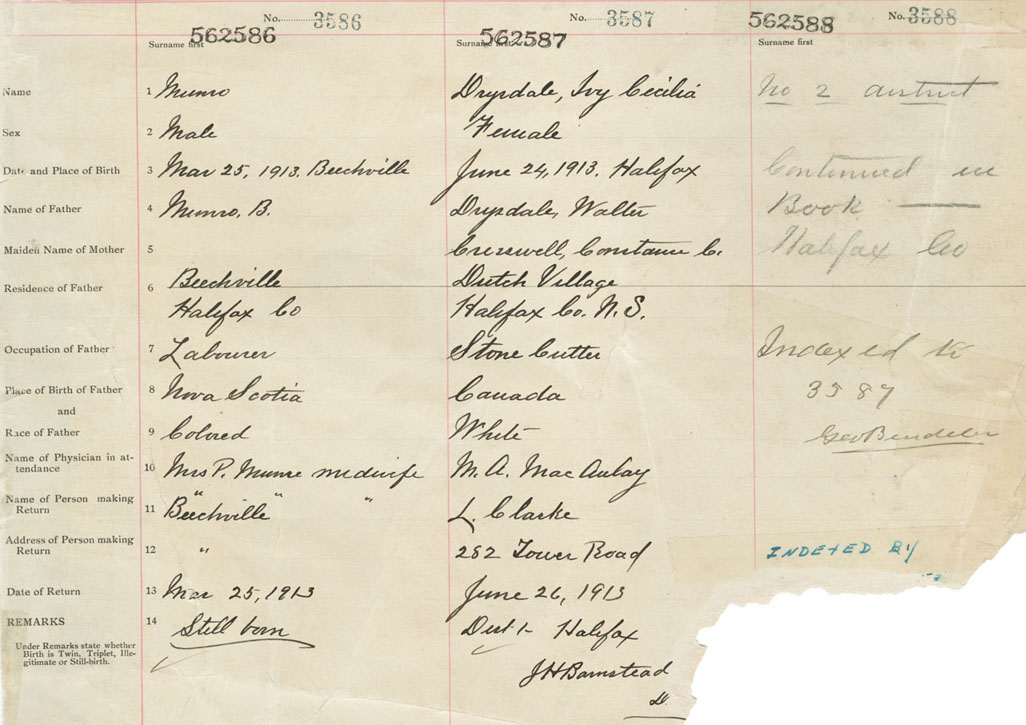 No. 3586
No. 3587
No. 3588
562586
562587
562588
Surname first
Surname first
Surname first
Name 1 Munro Drysdale, Ivy Cecilia No 2 district
Sex 2 Male Female
Date and Place of Birth 3 Mar 25, 1913. Beechville June 24, 1913. Halifax Continued in
Name of Father 4 Munro, B. Drysdale, Walter Book
Maiden Name of Mother 5 Cresswell, Constance C. Halifax Co
Residence of Father 6 Beechville Dutch Village
Halifax Co Halifax Co. N. S.
Occupation of Father 7 Labourer Stone Cutter Indexed to
Place of Birth of Father 8 Nova Scotia Canada 3587
and
Race of Father 9 Colored White Geo
Name of Physician in at-
tendance 10 Mrs P. Munro midwife M. A. MacAulay
Name of Person making " " "
Return 11 Beechville L. Clarke
Address of Person making
Return 12 " 282 Tower Road INDEXED BY
Date of Return 13 Mar 25, 1913 June 26, 1913
REMARKS 14 Still born Dist 1 - Halifax
Under Remarks state whether
Birth is Twin, Triplet, Ille-
gitimate or Still-birth.
JH Barnstead
D.